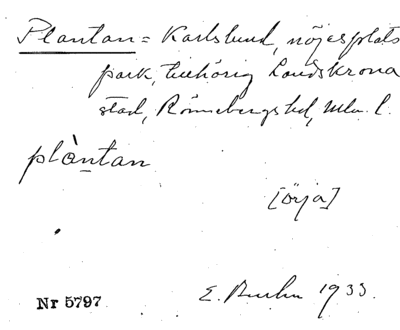 Plantan = Karlslund, nöjesplats
park, tillhörig Landskrona
stad, Rönnebergs hd, Mlm. l.
plàntan
[Örja]
E. 1933.
Nr 5797